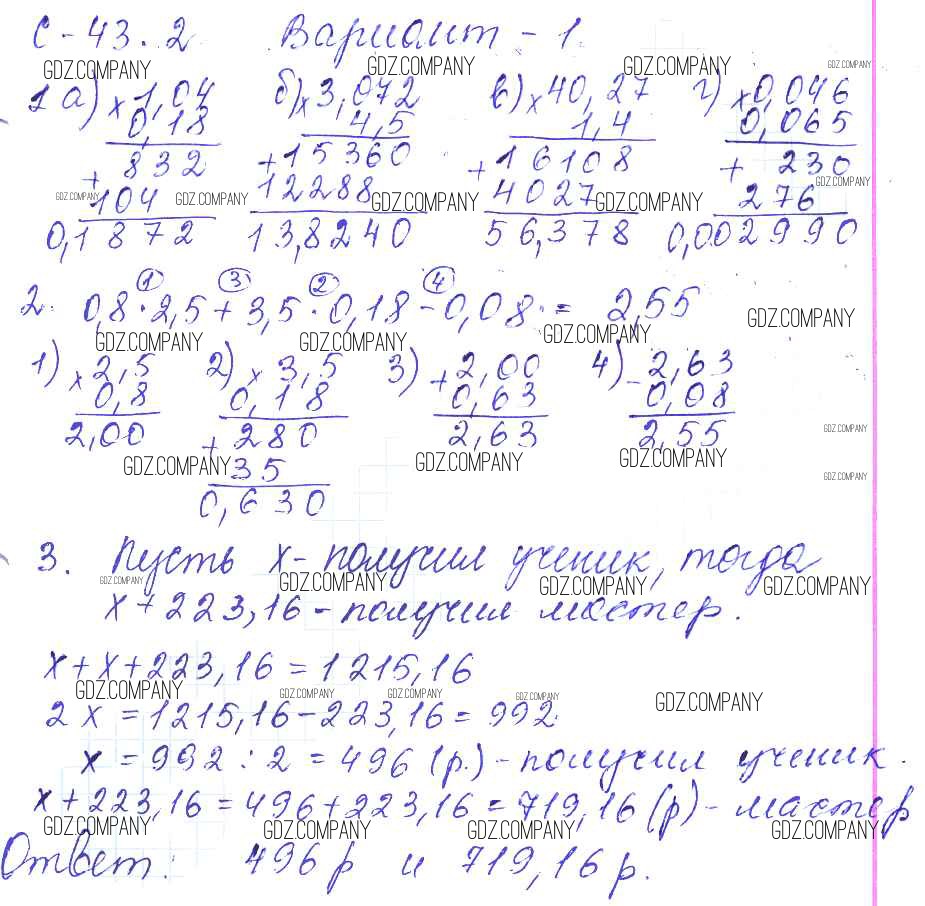 С-43.2 Вариант - 1.
GDZ.COMPANY GDZ.COMPANY GDZ.COMPANY GDZ.COMPANY
1 а) × 1,04 б) × 3,072 в) × 40,27 г) × 0,046
0,18 4,5 1,4 0,065
+ 832 + 15360 + 16108 + 230
104 12288 4027 276
GDZ.COMPANY GDZ.COMPANY GDZ.COMPANY GDZ.COMPANY GDZ.COMPANY
0,1872 13,8240 56,378 0,002990
1 3 2 4
2. 0,8 · 2,5 + 3,5 · 0,18 - 0,08 · = 2,55
GDZ.COMPANY GDZ.COMPANY GDZ.COMPANY GDZ.COMPANY
1) × 2,5 2) × 3,5 3) + 2,00 4) - 2,63
0,8 0,18 0,63 0,08
2,00 + 280 2,63 2,55
GDZ.COMPANY
GDZ.COMPANY GDZ.COMPANY GDZ.COMPANY
35
GDZ.COMPANY
0,630
3. Пусть х - получил ученик, тогда
GDZ.COMPANY GDZ.COMPANY GDZ.COMPANY GDZ.COMPANY
х + 223,16 - получил мастер.
х + х + 223,16 = 1215,16
GDZ.COMPANY GDZ.COMPANY GDZ.COMPANY GDZ.COMPANY GDZ.COMPANY
2 х = 1215,16 - 223,16 = 992
х = 992 : 2 = 496 (р.) - получил ученик.
х + 223,16 = 496 + 223,16 = 719,16 (р) - мастер
GDZ.COMPANY GDZ.COMPANY GDZ.COMPANY GDZ.COMPANY
Ответ: 496 р и 719,16 р.